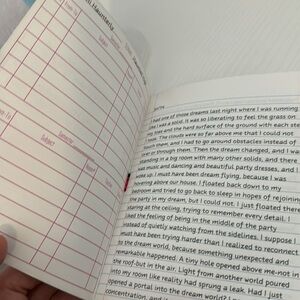 I had one of those dreams last night where I was running
like I was a solid. It was so liberating to feel the grass on
my toes and the hard surface of the ground with each step
I took. The clouds were so far above me that I could not
touch them, and I had to go around obstacles instead of
over or through them. Then the dream changed, and I was
standing in a big room with many other solids, and there
was music and dancing and beautiful party dresses, and I
woke up. I must have been dream flying, because I was
hovering above our house. I floated back down to my
bedroom and tried to go back to sleep in hopes of rejoining
the party in my dream, but I could not. I just floated there
staring at the ceiling, trying to remember every detail. I
liked the feeling of being in the middle of the party
instead of quietly watching from the sidelines. I suppose I
must have been trying harder than I realized to reconnect
to the dream world, because something unexpected and
remarkable happened. A tiny hole opened above me-not in
the roof-but in the air. Light from another world poured
into my room like reality had sprung a leak. Had I just
opened a portal into the dream world? I
concentration, and it